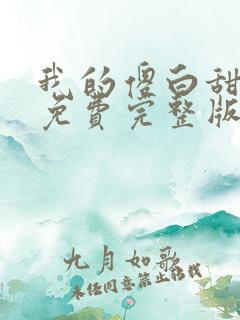 我的傻白甜
免费完整版
九月如歌
未经同意禁止转载